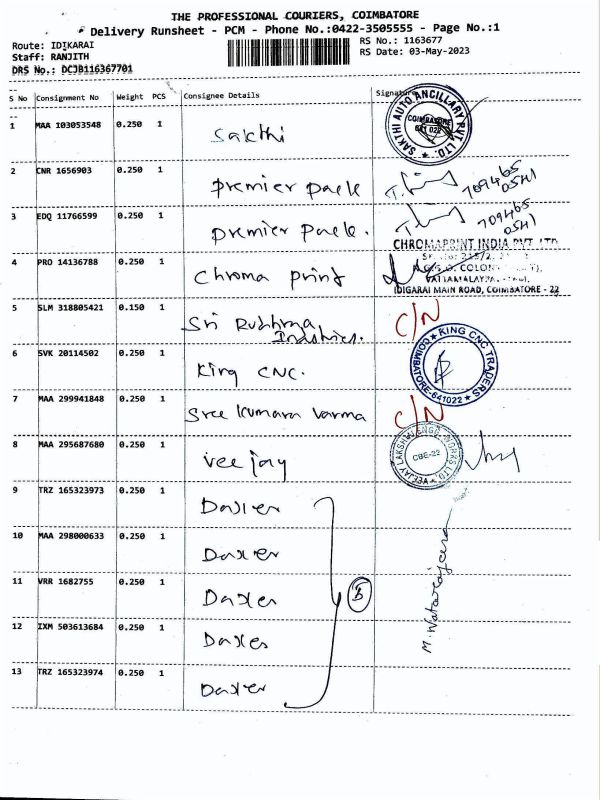 THE PROFESSIONAL COURIERS, COIMBATORE
Delivery Runsheet - PCM - Phone No.:0422-3505555 - Page No.:1
Route: IDIKARAI
RS No.: 1163677
Staff: RANJITH
RS Date: 03-May-2023
DRS No.: DCJB116367701
S No Consignment No Weight PCS Consignee Details Signature
1 MAA 103053548 0.250 1 Sakthi
SAKTHI AUTO ANCILLARY PVT. LTD.
COIMBATORE
641 022
2 CNR 1656903 0.250 1 premier pack
709465
0541
3 EDQ 11766599 0.250 1 premier pack.
709465
0541
CHROMAPRINT INDIA PVT LTD
4 PRO 14136788 0.250 1 Chroma print
IDIGARAI MAIN ROAD, COIMBATORE - 22
5 SLM 318805421 0.150 1 Sri
C/N
6 SVK 20114502 0.250 1 King CNC.
KING CNC TRADERS
COIMBATORE-641022
7 MAA 299941848 0.250 1 Sree Kumara Varma
C/N
8 MAA 295687680 0.250 1 Veejay
VEEJAY LAKSHMI ENGG. WORKS LTD.
CBE-22
9 TRZ 165323973 0.250 1 Daxer
10 MAA 298000633 0.250 1 Daxer
11 VRR 1682755 0.250 1 Daxer
5
12 IXM 503613684 0.250 1 Daxer
13 TRZ 165323974 0.250 1 Daxer